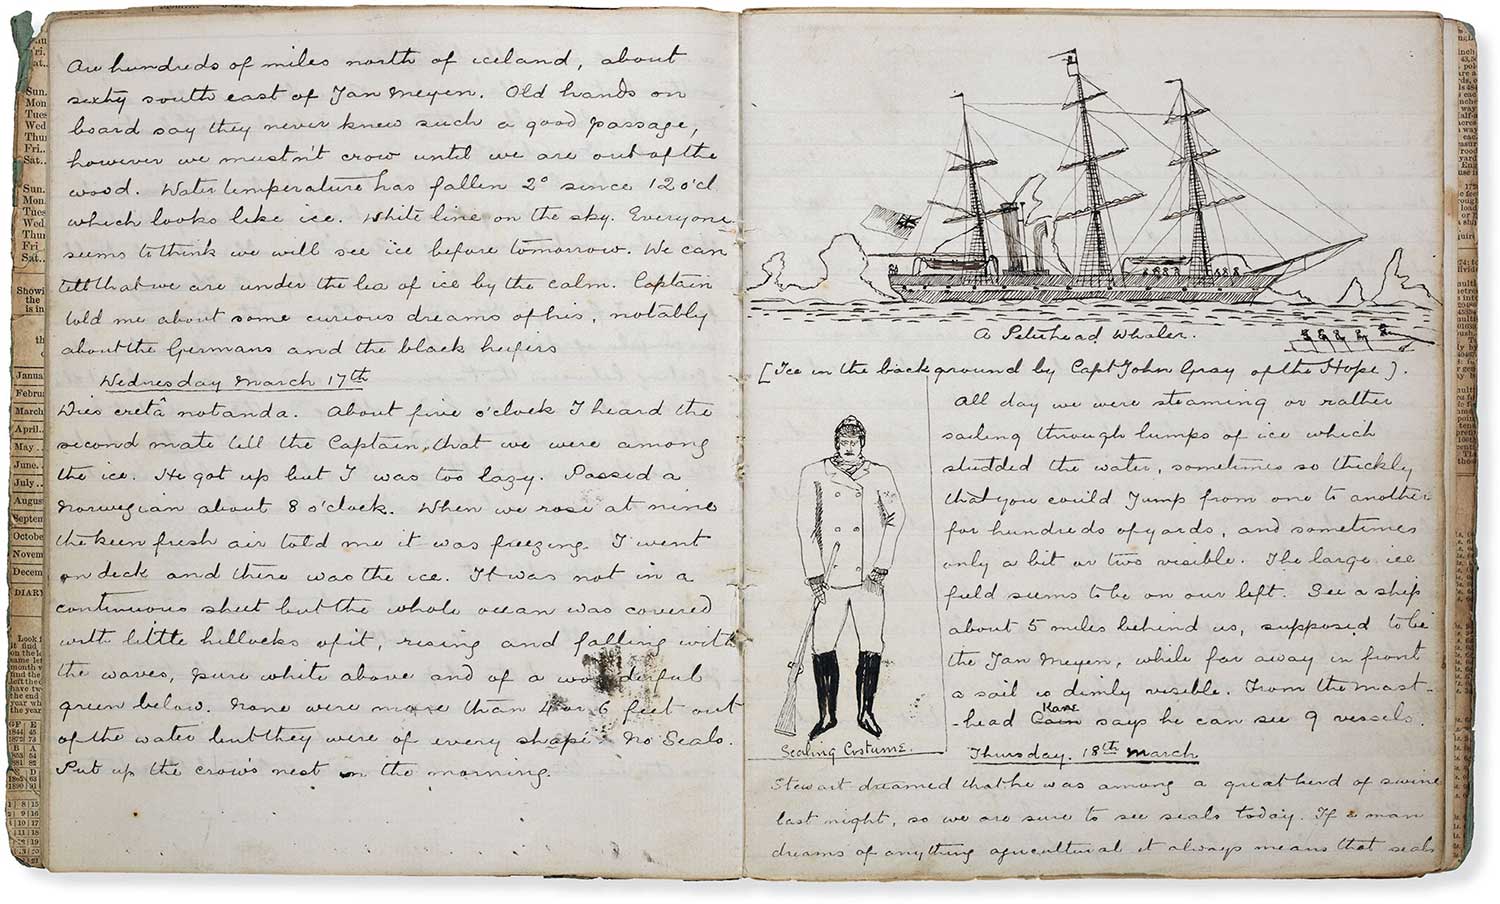 Are hundreds of miles north of iceland, about
sixty south east of Jan Meyen. Old hands on
board say they never knew such a good passage,
however we mustn't crow until we are out of the
wood. Water temperature has fallen 2° since 12 o'cl
which looks like ice. White line on the sky. Everyone
seems to think we will see ice before tomorrow. We can
tell that we are under the lea of ice by the calm. Captain
told me about some curious dreams of his, notably
about the Germans and the black heifers
Wednesday March 17th
Dies cretâ notanda. About five o'clock I heard the
second mate tell the Captain that we were among
the ice. He got up but I was too lazy. Passed a
Norwegian about 8 o'clock. When we rose at nine
the keen fresh air told me it was freezing. I went
on deck and there was the ice. It was not in a
continuous sheet but the whole ocean was covered
with little hillocks of it, rising and falling with
the waves, pure white above and of a wonderful
green below. None were more than 4 or 6 feet out
of the water but they were of every shape. No Seals.
Put up the crow's nest in the morning.
A Peterhead Whaler.
[Ice in the background by Capt John Gray of the Hope).
All day we were steaming or rather
sailing through lumps of ice which
studded the water, sometimes so thickly
that you could jump from one to another
for hundreds of yards, and sometimes
only a bit or two visible. The large ice
field seems to be on our left. See a ship
about 5 miles behind us, supposed to be
the Jan Meyen, while far away in front
a sail is dimly visible. From the mast-
Kane
-head Cain says he can see 9 vessels.
Sealing Costume.
Thursday. 18th March
Stewart dreamed that he was among a great herd of swine
last night, so we are sure to see seals today. If a man
dreams of anything agricultural it always means that seals
Sun.
Mon
Tues
Wed
Thur
Fri..
Sat..
Sun.
Mon.
Tues
Wed
Thur
Fri
Sat..
Showi
the
is in
Janua
Februa
March
April..
May ..
June..
July ..
August
Septem
Octobe
Novem
Decem
DIARY